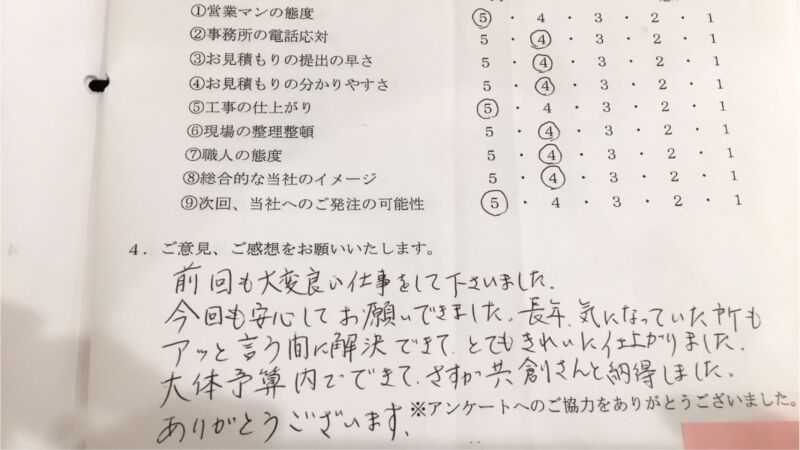 ①営業マンの態度 5 ・ 4 ・ 3 ・ 2 ・ 1
②事務所の電話応対 5 ・ 4 ・ 3 ・ 2 ・ 1
③お見積もりの提出の早さ 5 ・ 4 ・ 3 ・ 2 ・ 1
④お見積もりの分かりやすさ 5 ・ 4 ・ 3 ・ 2 ・ 1
⑤工事の仕上がり 5 ・ 4 ・ 3 ・ 2 ・ 1
⑥現場の整理整頓 5 ・ 4 ・ 3 ・ 2 ・ 1
⑦職人の態度 5 ・ 4 ・ 3 ・ 2 ・ 1
⑧総合的な当社のイメージ 5 ・ 4 ・ 3 ・ 2 ・ 1
⑨次回、当社へのご発注の可能性 5 ・ 4 ・ 3 ・ 2 ・ 1
4．ご意見、ご感想をお願いいたします。
前回も大変良い仕事をして下さいました。
今回も安心してお願いできました。長年、気になっていたヶ所も
アッと言う間に解決できて、とてもきれいに仕上がりました。
大体予算内でできて、さすが共創さんと納得しました。
ありがとうございます。
※アンケートへのご協力をありがとうございました。